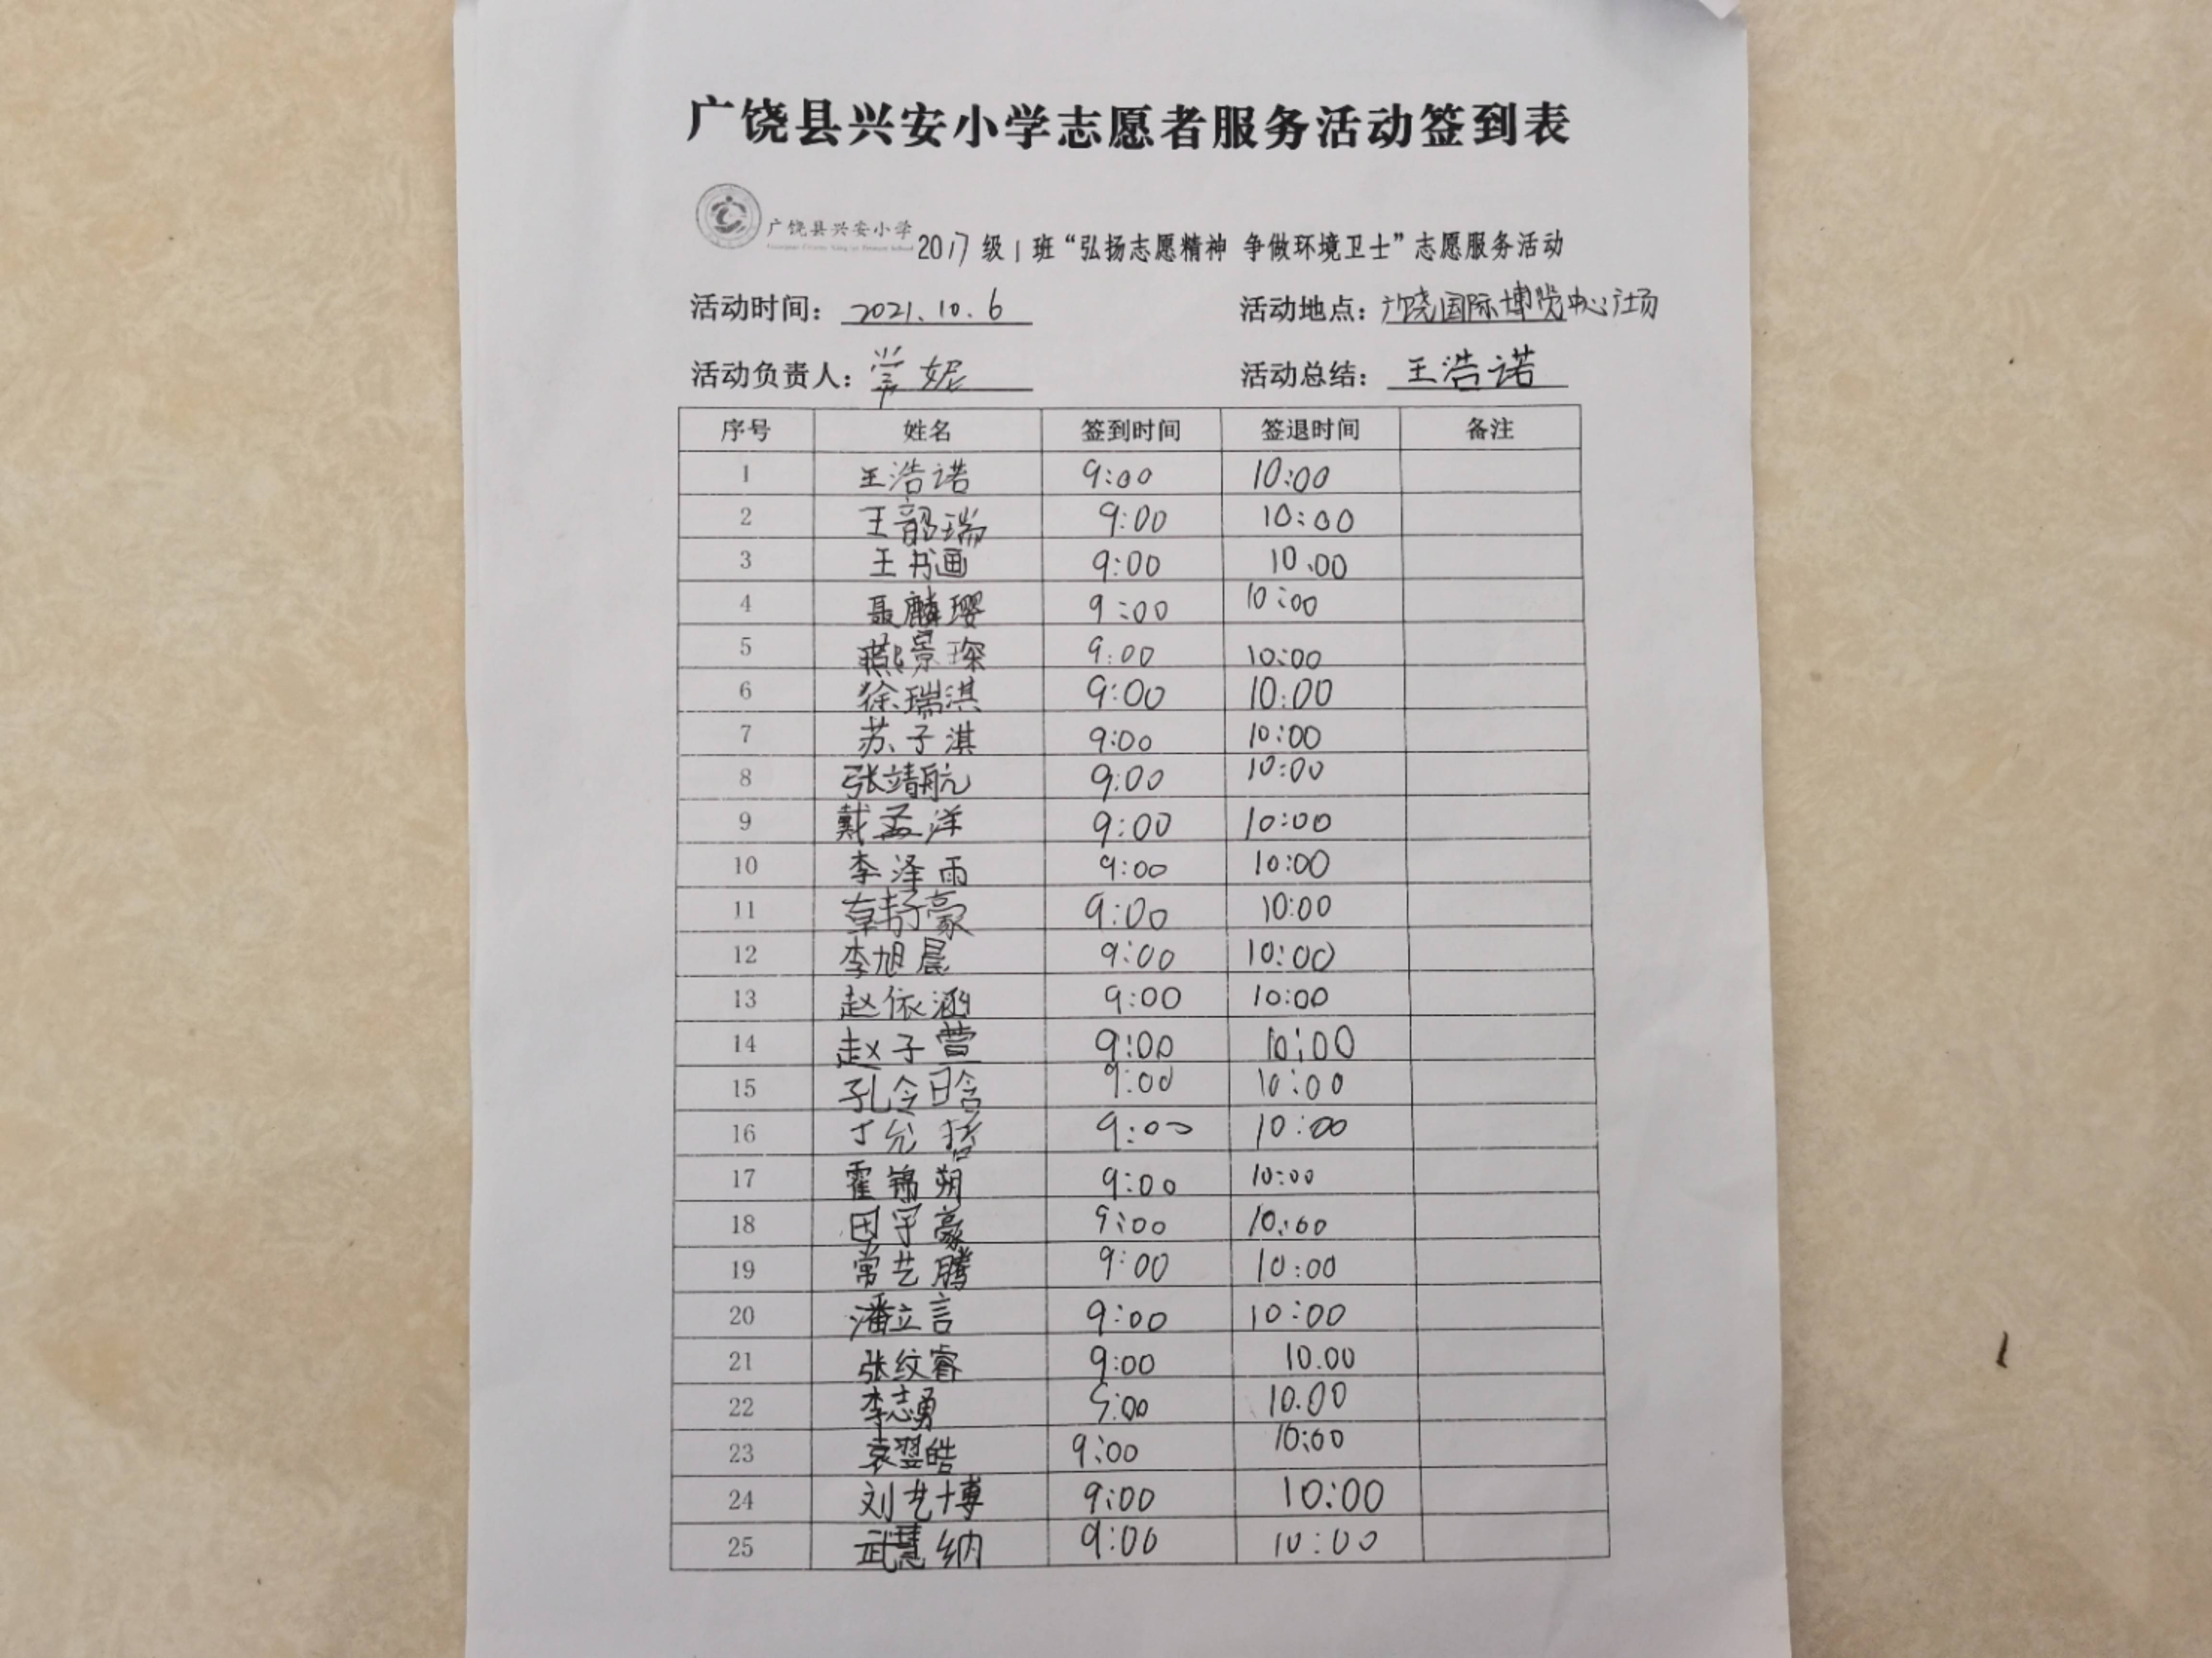 广饶县兴安小学志愿者服务活动签到表
广饶县兴安小学
2017级1班“弘扬志愿精神 争做环境卫士”志愿服务活动
活动时间：2021.10.6 活动地点：广饶国际博览中心广场
活动负责人：常妮 活动总结：王浩诺
序号 姓名 签到时间 签退时间 备注
1 王浩诺 9:00 10:00
2 王韶瑞 9:00 10:00
3 王书画 9:00 10.00
4 聂麟璎 9:00 10:00
5 燕景琛 9:00 10:00
6 徐瑞淇 9:00 10:00
7 苏子淇 9:00 10:00
8 张靖航 9:00 10:00
9 戴孟洋 9:00 10:00
10 李泽雨 9:00 10:00
11 韩子豪 9:00 10:00
12 李旭晨 9:00 10:00
13 赵依涵 9:00 10:00
14 赵子萱 9:00 10:00
15 孔令晗 9:00 10:00
16 丁允哲 9:00 10:00
17 霍锦朔 9:00 10:00
18 田宇豪 9:00 10:00
19 常艺腾 9:00 10:00
20 潘立言 9:00 10:00
21 张纹睿 9:00 10.00
22 李志勇 9:00 10.00
23 袁翌皓 9:00 10:00
24 刘艺博 9:00 10:00
25 武慧纳 9:00 10:00